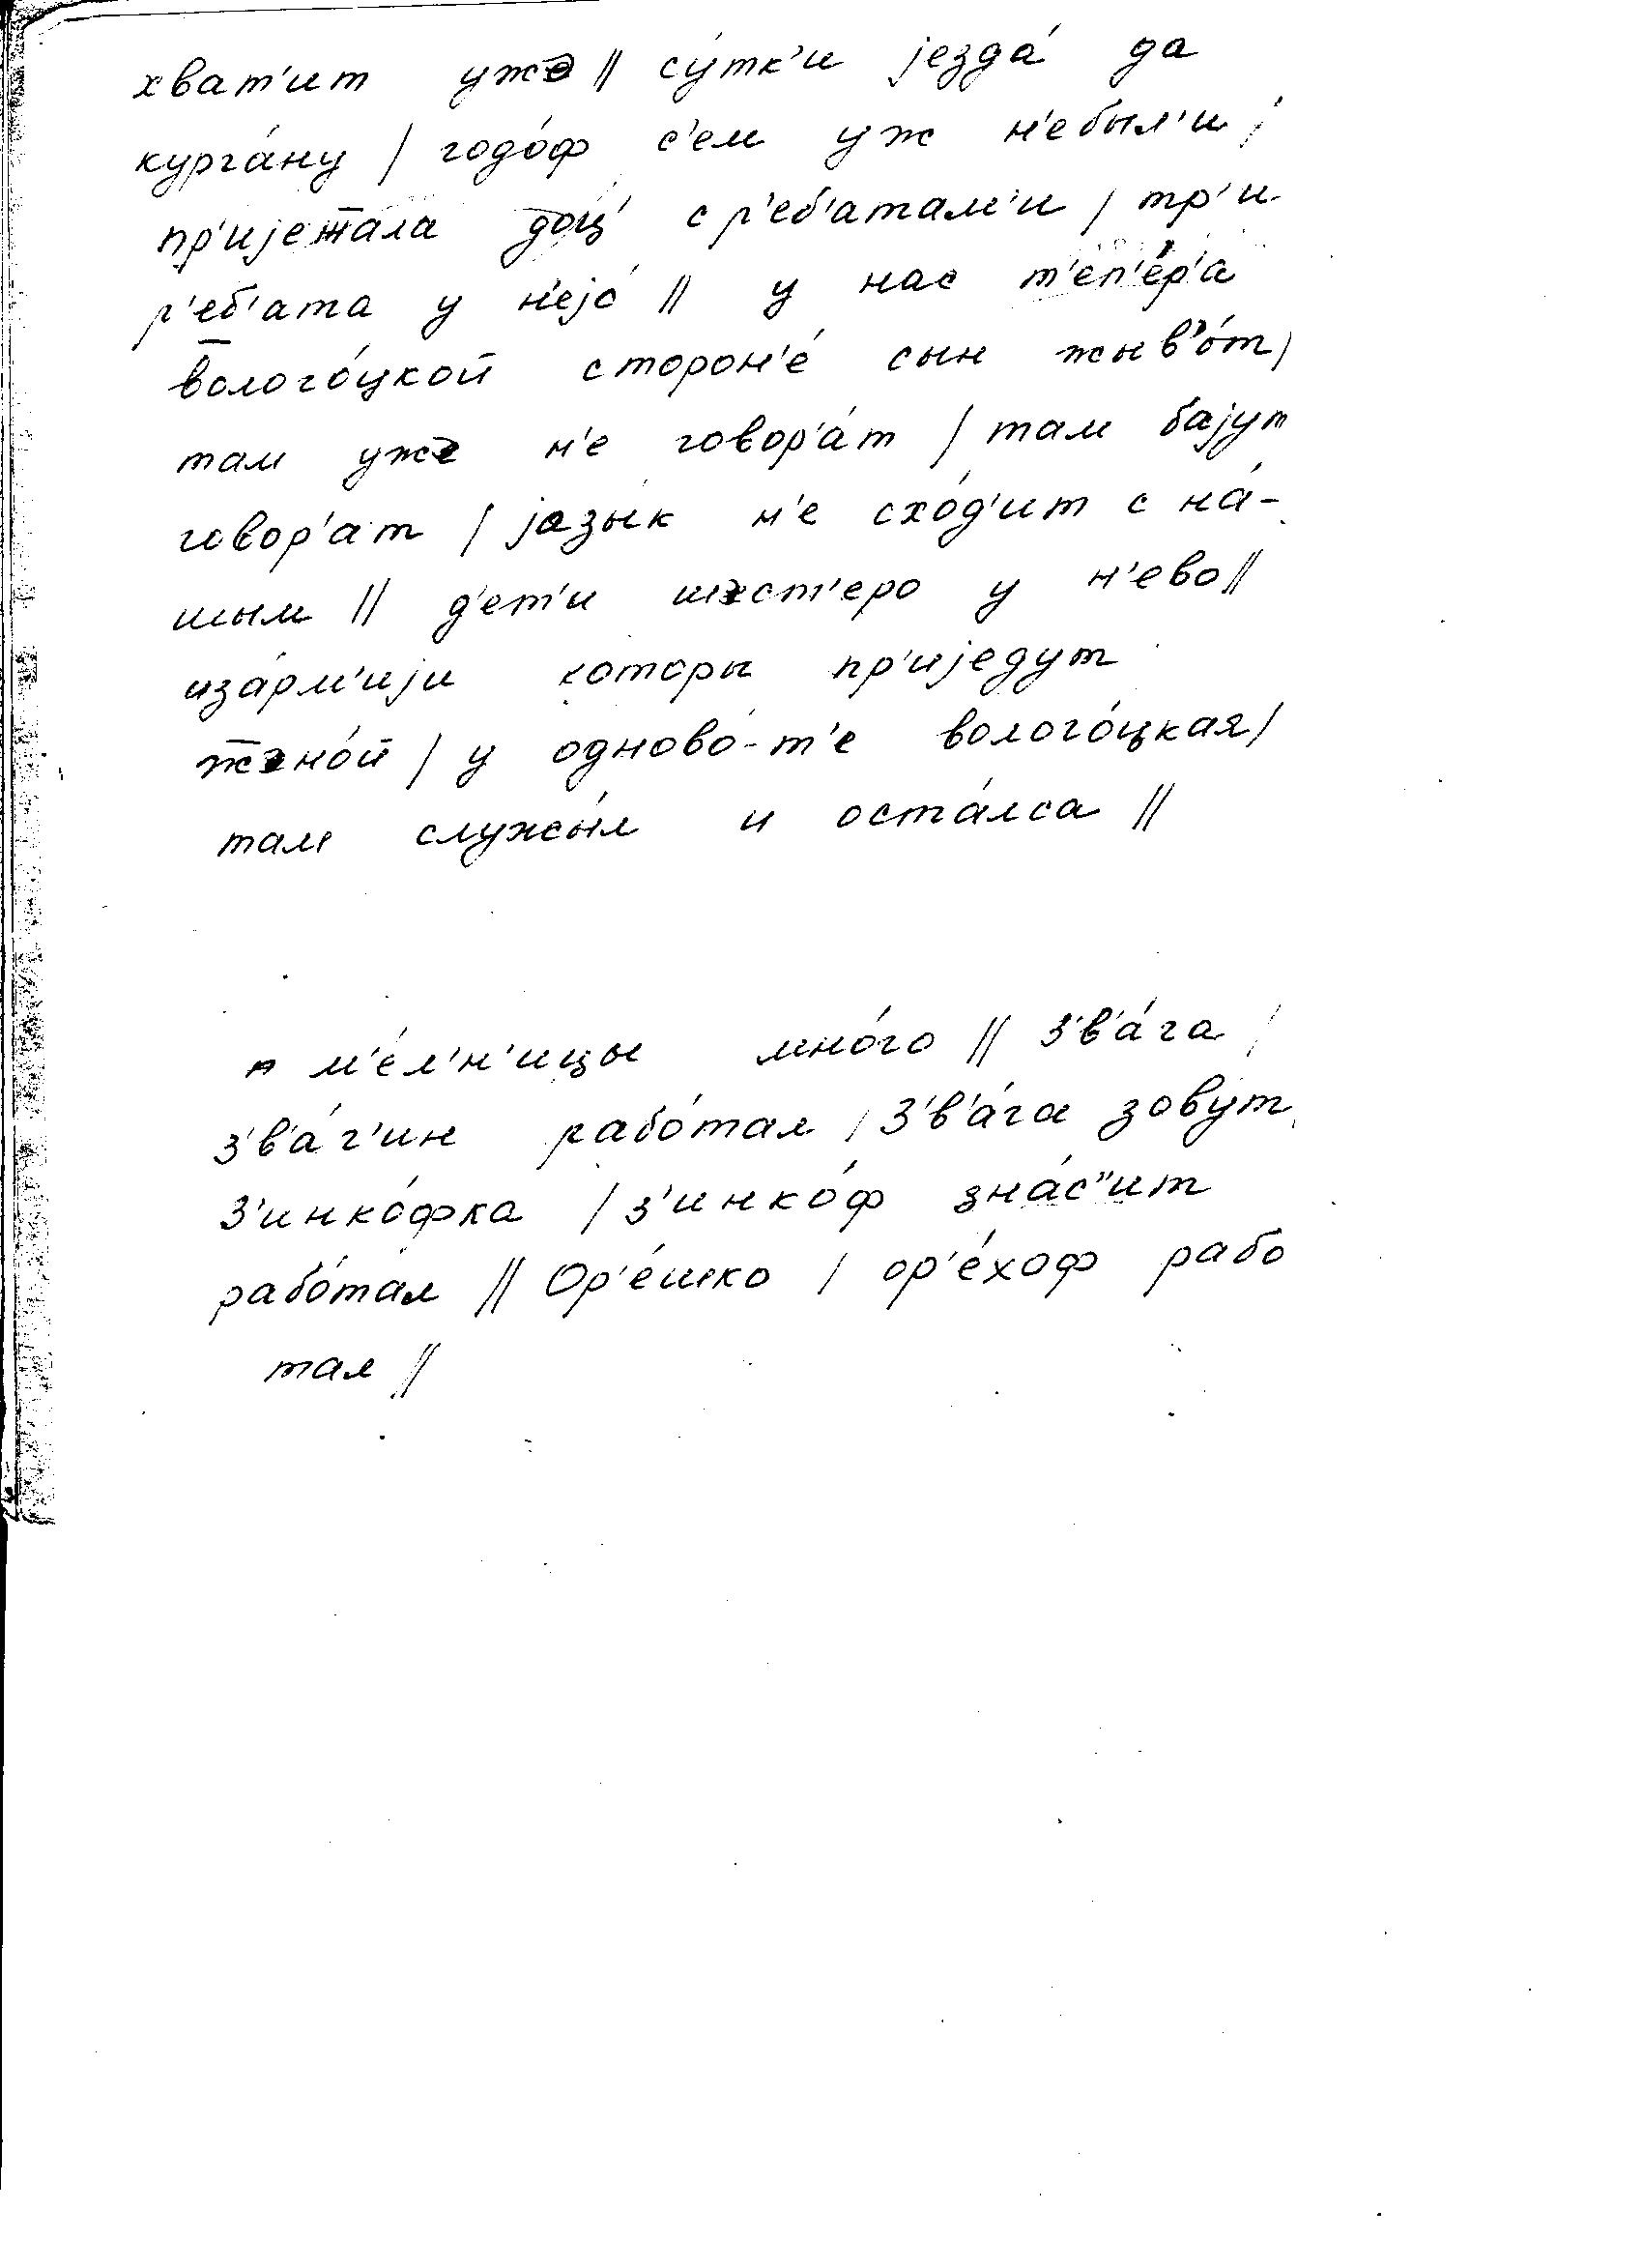 хват'ит ужэ || су́тк'и jезда́ да
курга́ну | годо́ф с'ем уж н'ебыл'и |
пр'иjежала доц' с р'еб'атам'и | тр'и
р'еб'ата у н'еjо́ || у нас т'еп'е́р'а
волого́цкой сторон'е́ сын жыв'о́т |
там ужэ н'е говор'а́т | там баjут
говор'ат | jазы́к н'е схо́д'ит с на́-
шым || д'ет'и шэст'еро у н'ево ||
иза́рм'иjи которы пр'иjедут
жэно́й | у одново́-т'е волого́цкая |
там служы́л и оста́лса ||
а м'е́л'н'ицы мно́го || З'в'а́га |
з'в'а́г'ин рабо́тал | З'в'а́га зовут
З'инко́фка | з'инко́ф зна́с"ит
рабо́тал || Ор'е́шко | ор'е́хоф рабо
тал ||